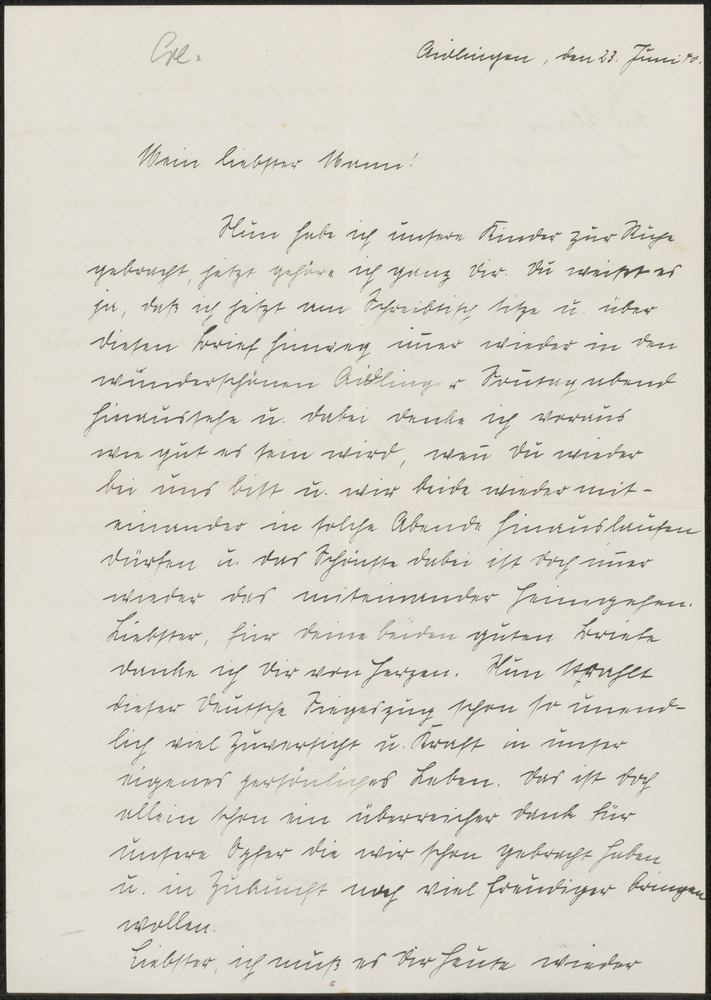 Erl.
Aidlingen, den 23. Juni 40.
Mein liebster Mann!
Nun habe ich unsere Kinder zur Ruhe
gebracht, jetzt gehöre ich ganz Dir. Du weisst es
ja, daß ich jetzt am Schreibtisch sitze u. über
diesen Brief hinweg im̄er wieder in den
wunderschönen Aidlinger Sonntagabend
hinaussehe u. dabei denke ich voraus
wie gut es sein wird, wen̄ Du wieder
bei uns bist u. wir beide wieder mit-
einander in solche Abende hinauslaufen
dürfen u. das Schönste dabei ist doch im̄er
wieder das miteinander heimgehen.
Liebster, für deine beiden guten Briefe
danke ich Dir von Herzen. Nun strahlt
dieser deutsche Siegeszug schon so unend-
lich viel Zuversicht u. Kraft in unser
eigenes persönliches Leben. Das ist doch
allein schon ein überreicher Dank für
unsere Opfer die wir schon gebracht haben
u. in Zukunft noch viel freudiger bringen
wollen.
Liebster, ich muß es Dir heute wieder